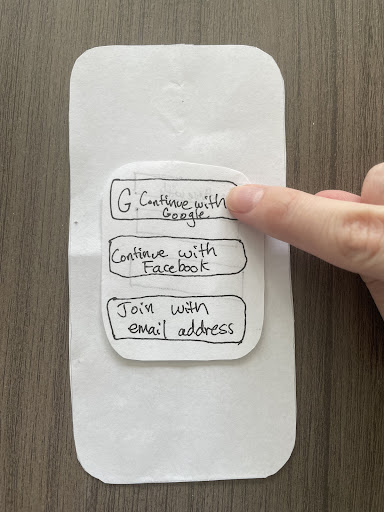 G Continue with
Google
Continue with
Facebook
Join with
email address